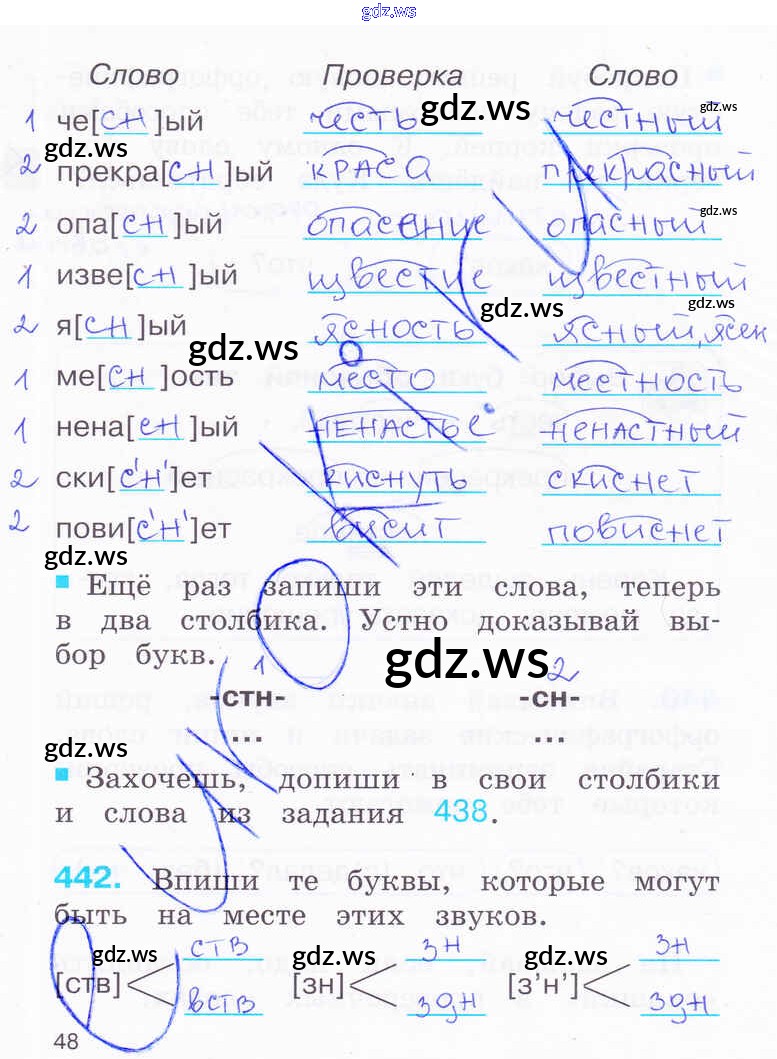 gdz.ws
Слово Проверка Слово
1 че[сн]ый честь gdz.ws честный gdz.ws
gdz.ws
2 прекра[сн]ый краса прекрасный
2 опа[сн]ый опасение опасный gdz.ws
1 изве[сн]ый известие известный
gdz.ws gdz.ws
2 я[сн]ый ясность ясный, ясен
gdz.ws
1 ме[сн]ость место местность
1 нена[сн]ый ненастье ненастный
2 ски[с'н']ет киснуть скиснет
2 пови[с'н']ет висит повиснет
gdz.ws
Ещё раз запиши эти слова, теперь
в два столбика. Устно доказывай вы-
бор букв. gdz.ws
1 2
-стн- -сн-
gdz.ws
... ...
Захочешь, допиши в свои столбики
и слова из задания 438.
442. Впиши те буквы, которые могут
быть на месте этих звуков.
ств зн зн
gdz.ws gdz.ws gdz.ws
[ств] [зн] [з'н']
вств здн здн
48